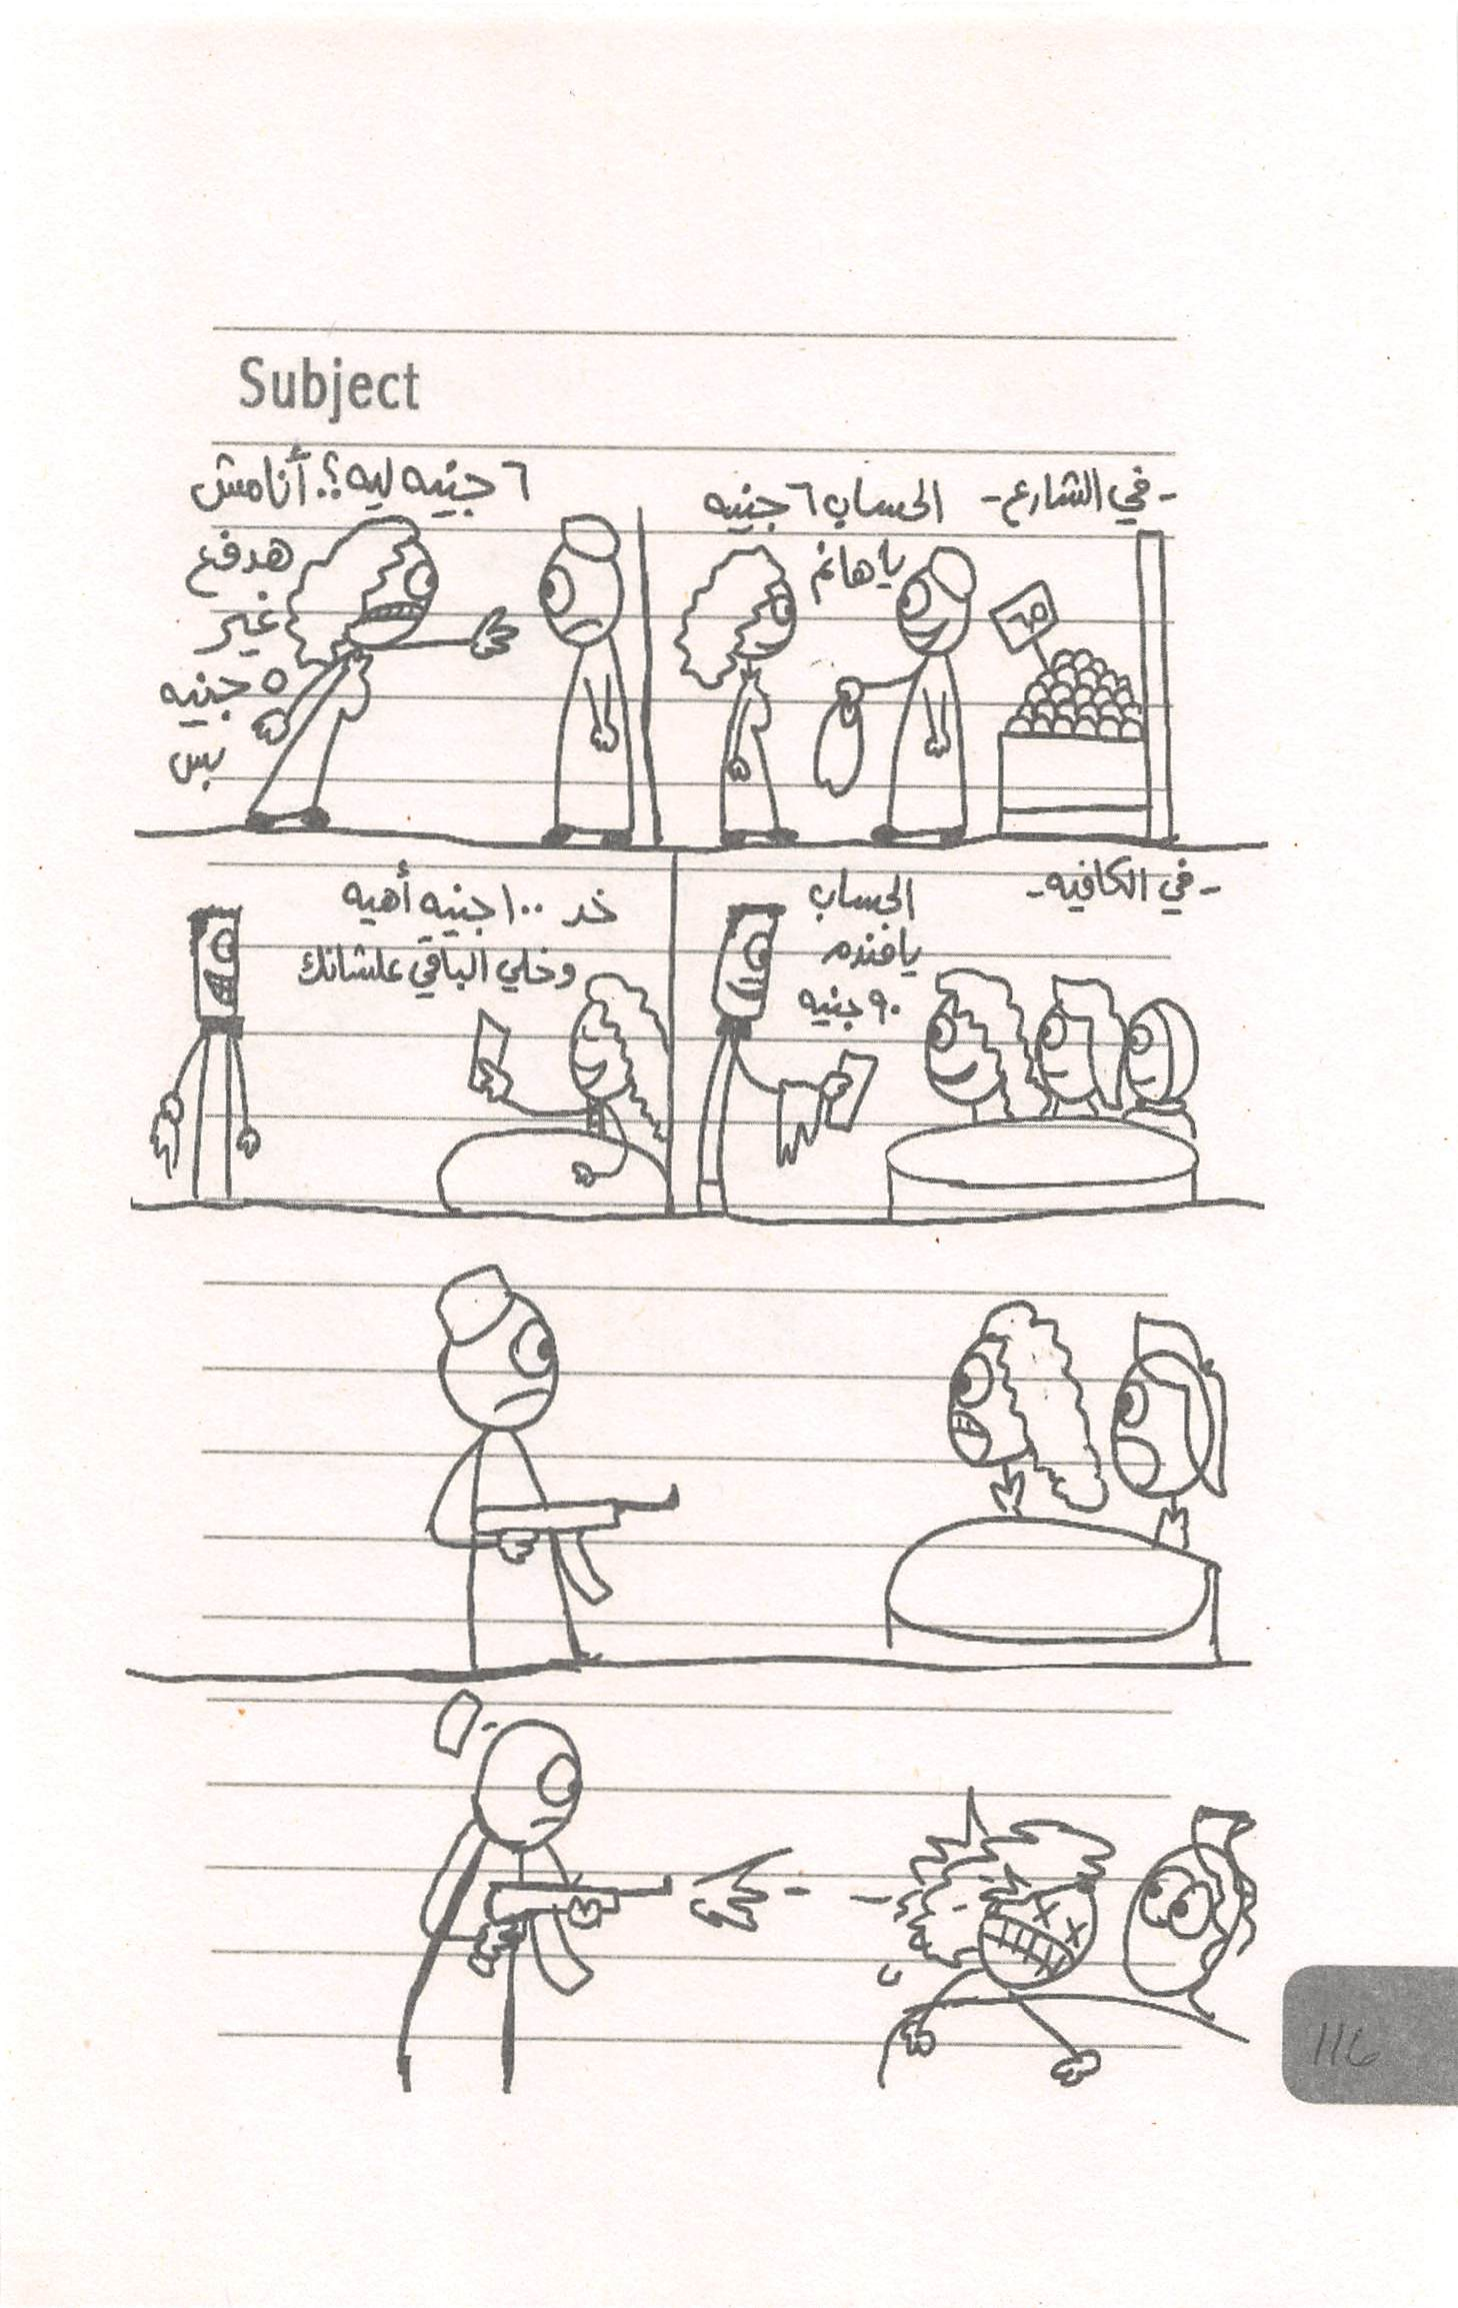 Subject
-في الشارع-
الحساب ٦ جنيه
يا هانم
٦ جنيه ليه؟. أنا مش
هدفع
غير
٥ جنيه
بس
-في الكافيه-
الحساب
يا فندم
٩٠ جنيه
خد ١٠٠ جنيه أهيه
وخلي الباقي علشانك
116